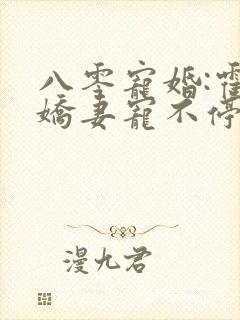 八零寵婚:霍
嬌妻寵不停
漫九君